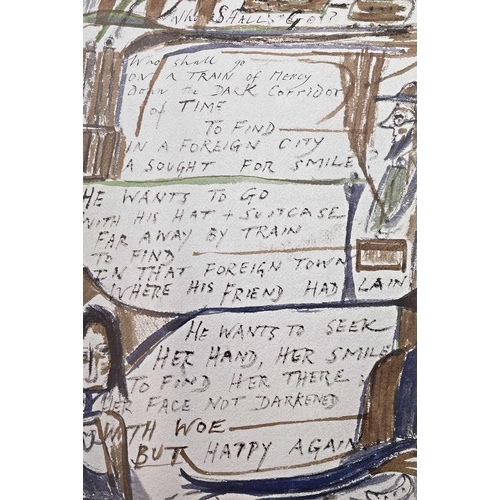 Who SHALL GO?
Who shall go
ON A TRAIN of Mercy
Down the DARK Corridor
of TIME
TO FIND
IN A FOREIGN CITY
A SOUGHT FOR SMILE?
HE WANTS TO GO
WITH HIS HAT + SUITCASE
FAR AWAY BY TRAIN
TO FIND
IN THAT FOREIGN TOWN
WHERE HIS FRIEND HAD LAIN
HE WANTS TO SEEK
HER HAND, HER SMILE
TO FIND HER THERE
HER FACE NOT DARKENED
WITH WOE
BUT HAPPY AGAIN